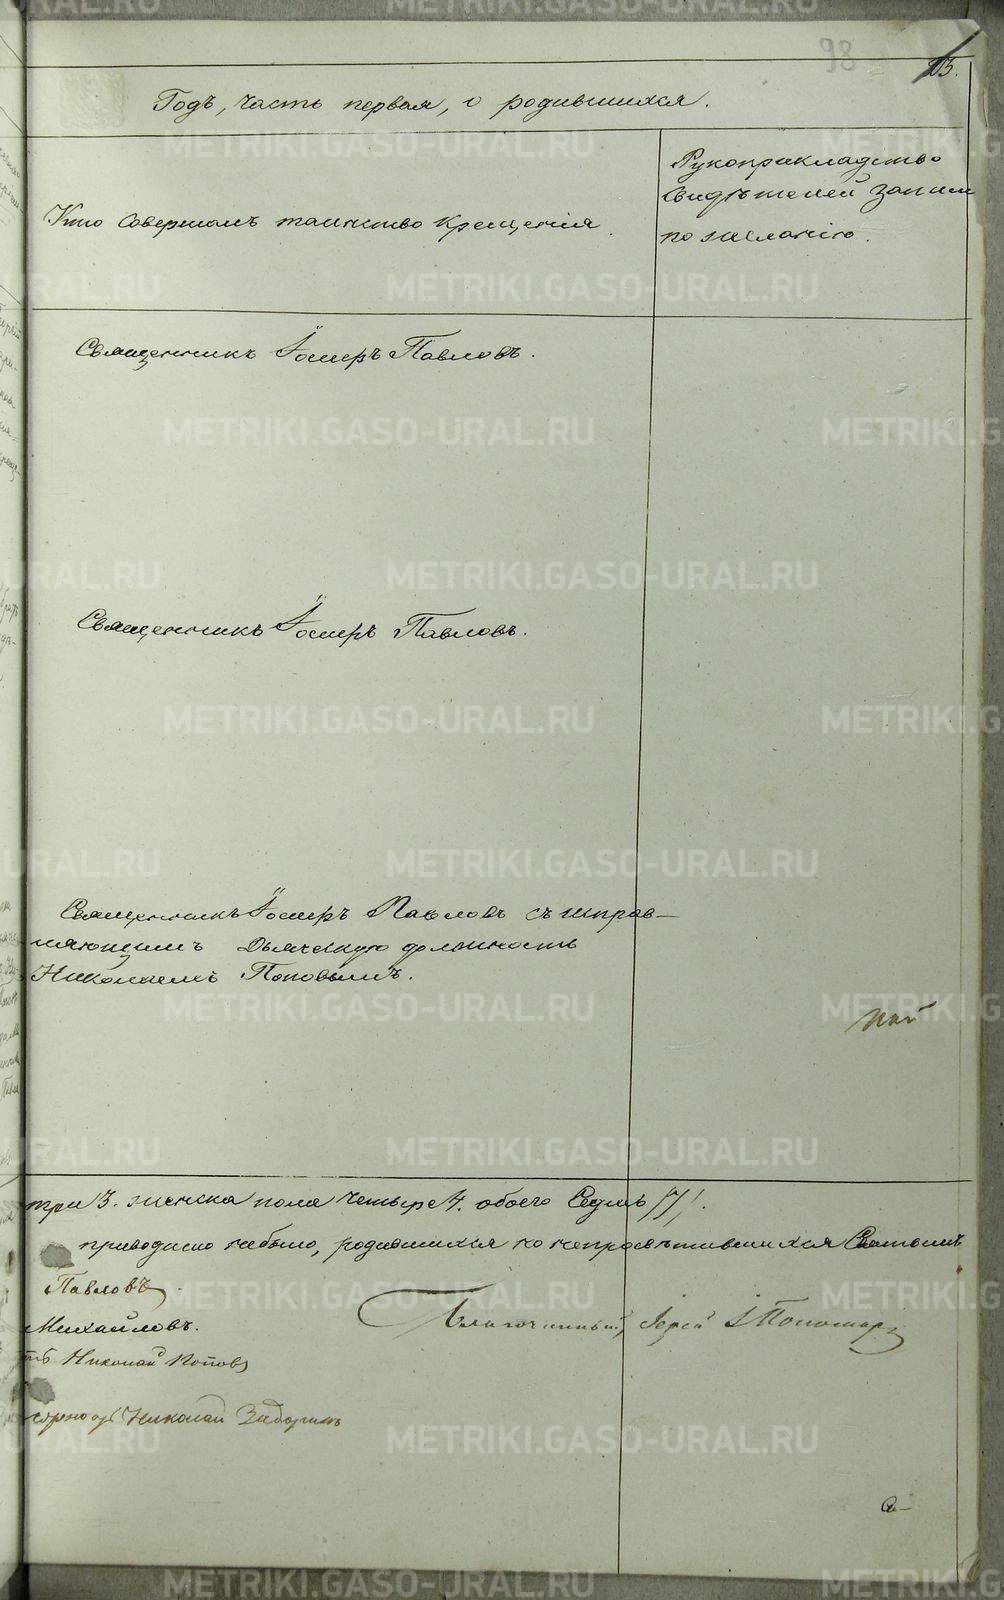 98
Годъ, часть первая, о родившихся.
Кто совершалъ таинство крещенія.
Рукоприкладство
свидѣтелей записи
по желанію.
Священникъ Іосифъ Павловъ.
Священникъ Іосифъ Павловъ.
Священникъ Іосифъ Павловъ съ исправ-
ляющимъ дьяческую должность
Николаемъ Поповымъ.
три 3. женска пола четыре 4. обоего седмь /7/.
приводимо небыло, родившихся но непросвѣтившихся Святымъ
Павловъ.
Михайловъ.
Благочинный, Іерей І Пономар
Николай Попов
Николай
Св-
METRIKI.GASO-URAL.RU